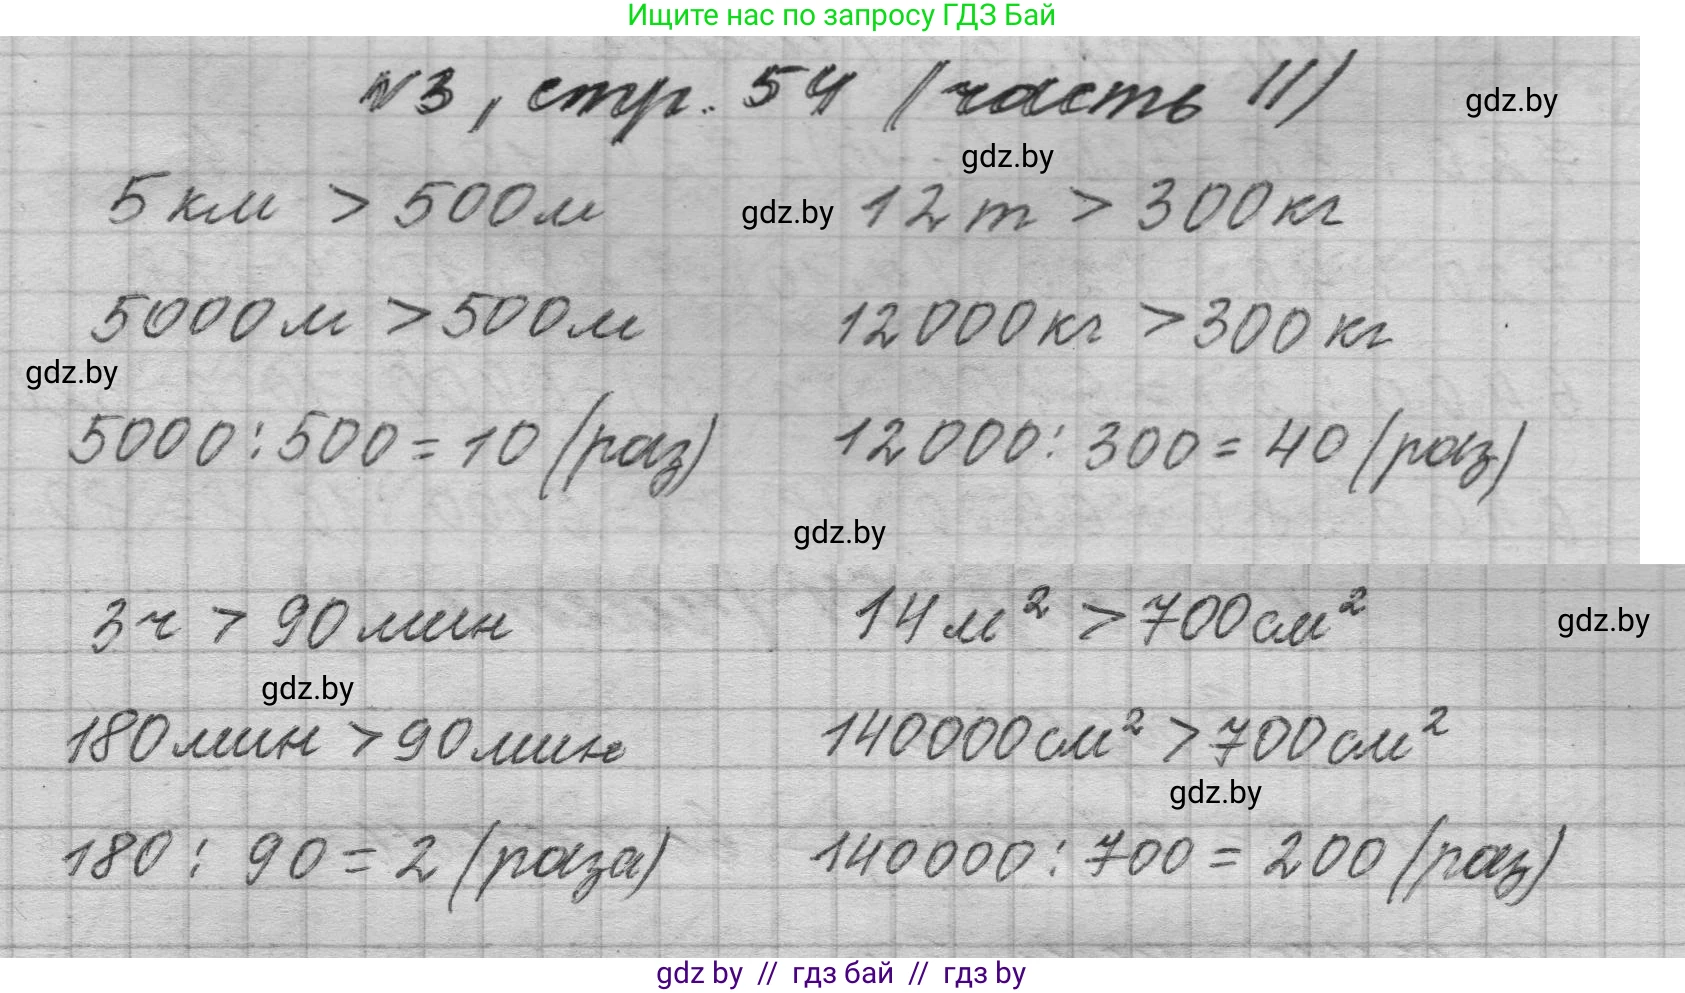 Ищите нас по запросу ГДЗ Бай
№3, стр. 54 (часть II)
gdz.by
gdz.by
5 км > 500 м
gdz.by
12 т > 300 кг
5000 м > 500 м
12000 кг > 300 кг
gdz.by
5000 : 500 = 10 (раз)
12000 : 300 = 40 (раз)
gdz.by
3 ч > 90 мин
14 м² > 700 см²
gdz.by
gdz.by
180 мин > 90 мин
140000 см² > 700 см²
gdz.by
180 : 90 = 2 (раза)
140000 : 700 = 200 (раз)
gdz by // гдз бай // гдз by